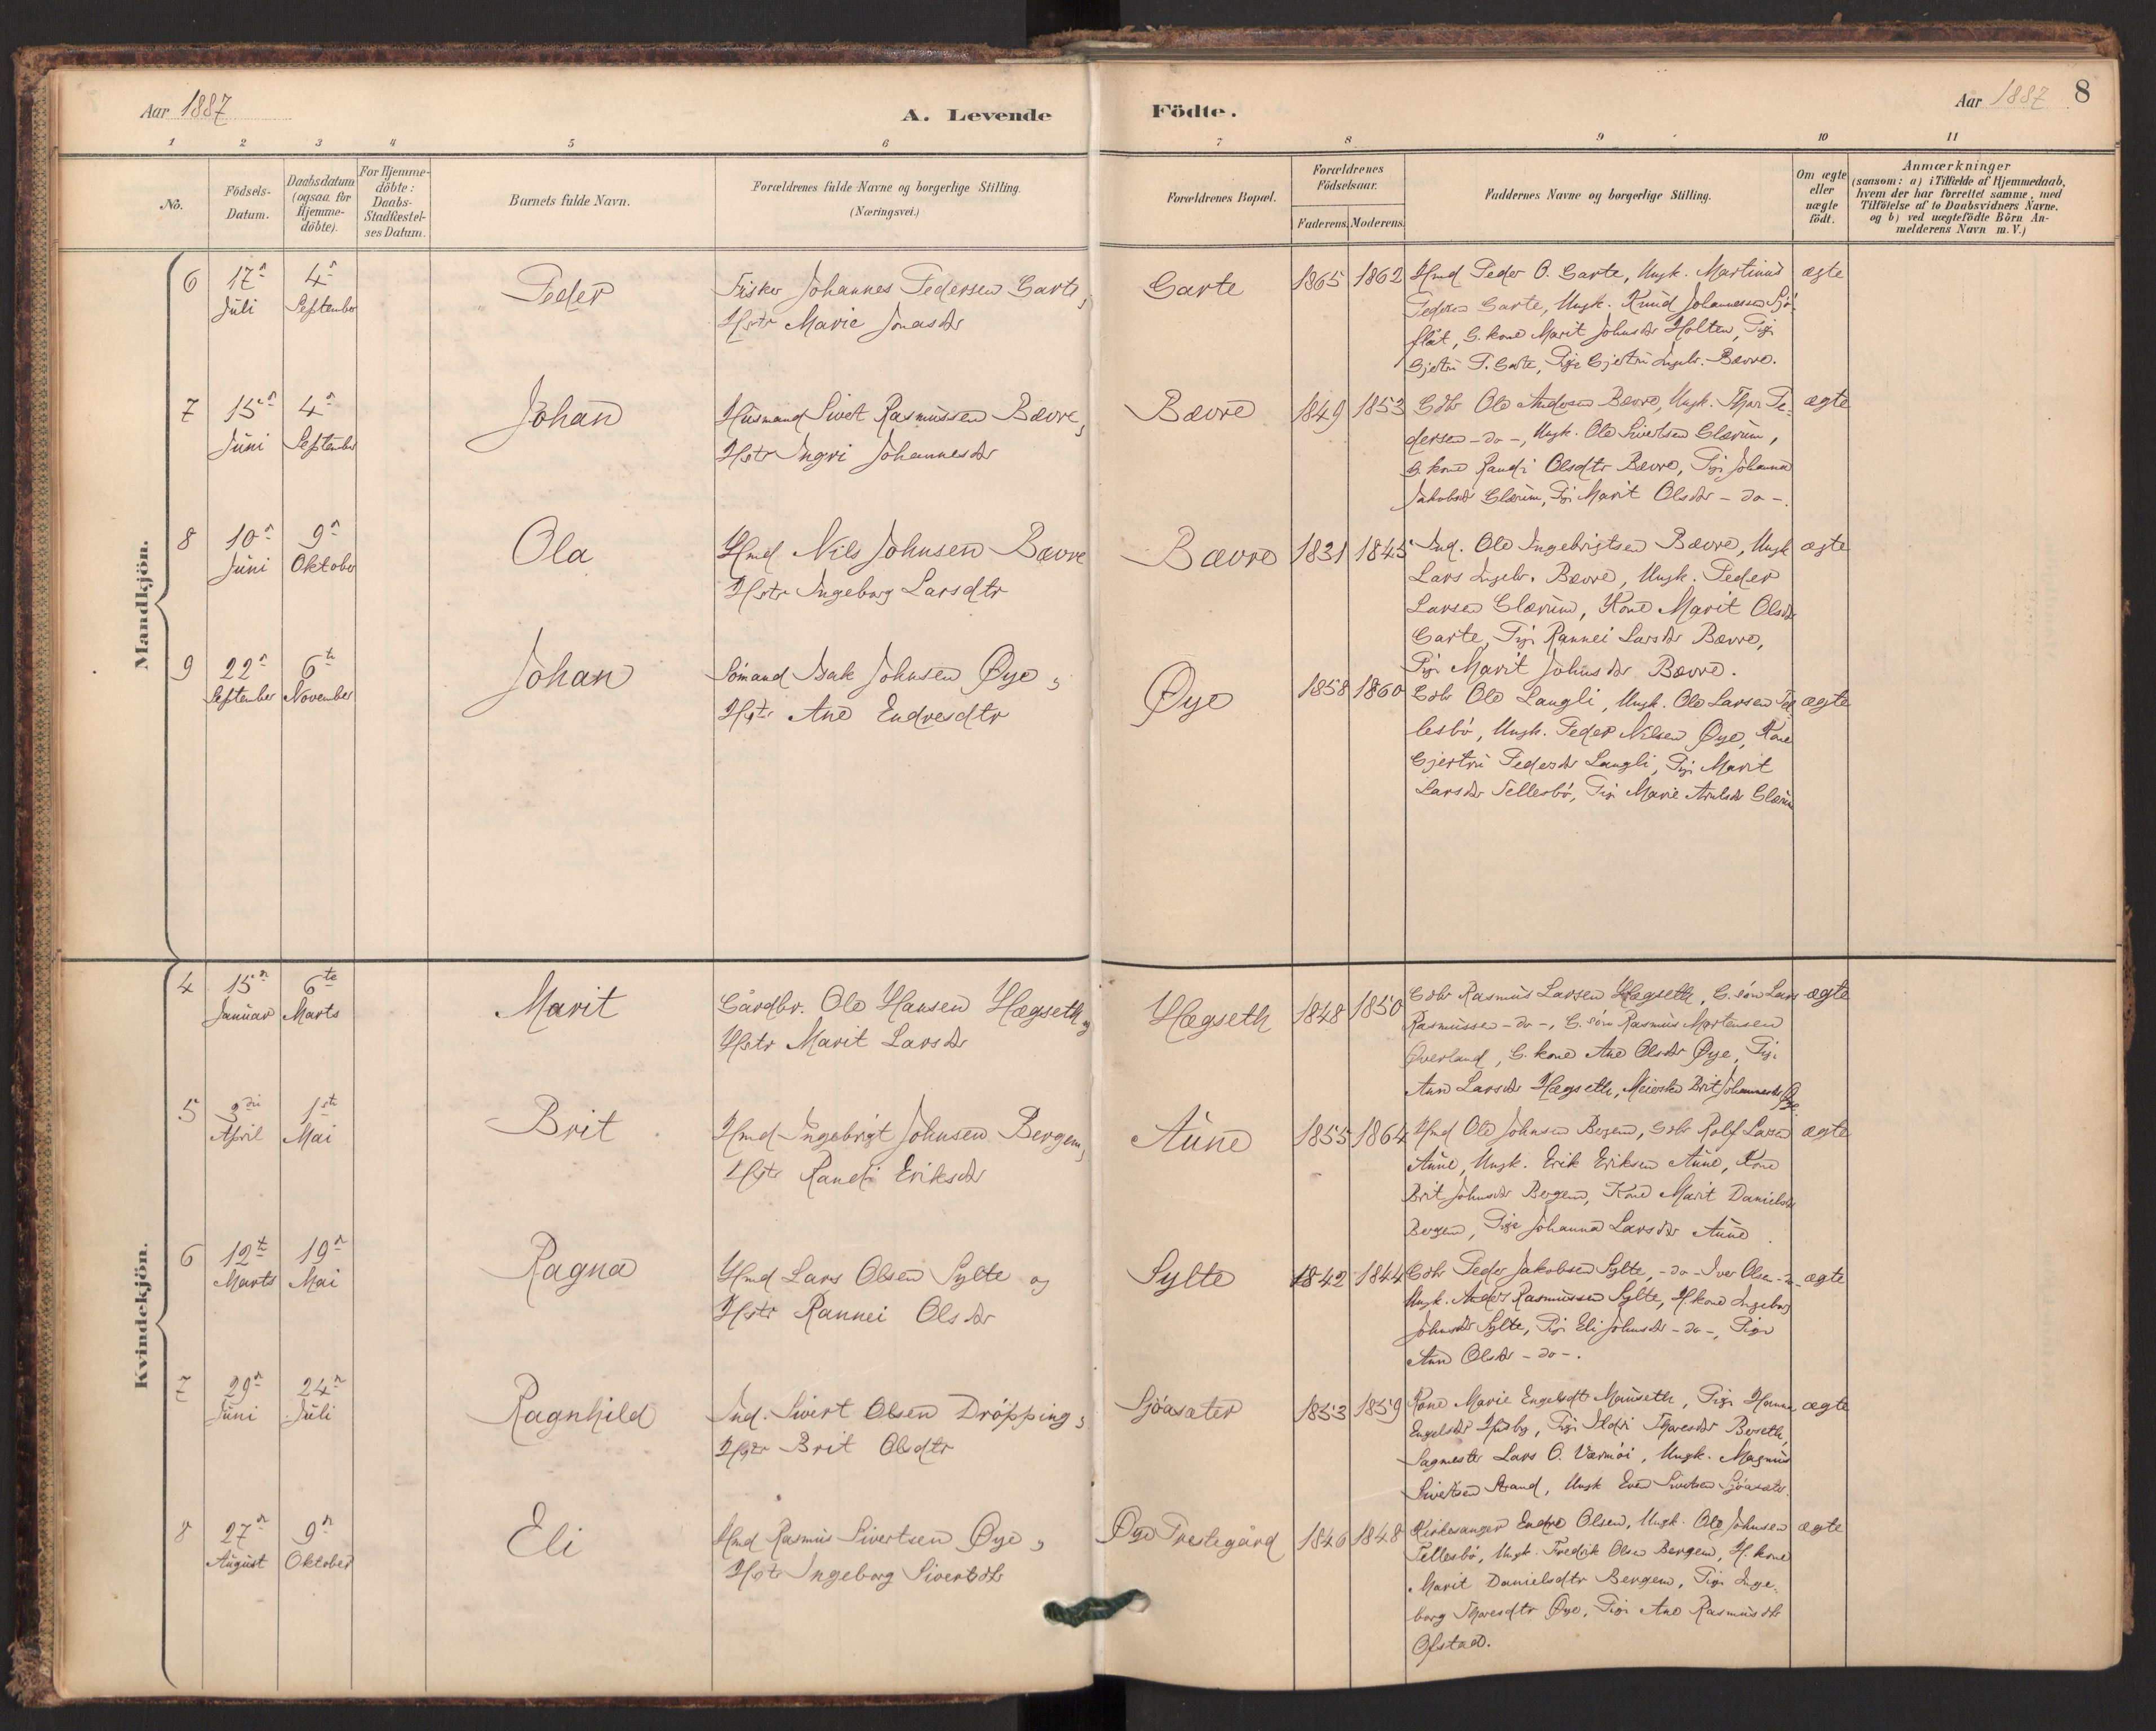 Aar 1887
A. Levende
Födte.
Aar 1887
8
1 2 3 4 5 6 7 8 9 10 11
No.
Födsels-
Datum.
Daabsdatum
(ogsaa for
Hjemme-
döbte).
For Hjemme-
döbte:
Daabs-
Stadfæstel-
ses Datum.
Barnets fulde Navn.
Forældrenes fulde Navne og borgerlige Stilling.
(Næringsvei.)
Forældrenes Bopæl.
Forældrenes
Födselsaar.
Faderens. Moderens.
Faddernes Navne og borgerlige Stilling.
Om ægte
eller
uægte
födt.
Anmærkninger
(saasom: a) i Tilfælde af Hjemmedaab,
hvem der har forrettet samme, med
Tilföielse af to Daabsvidners Navne.
og b) ved uægtefödte Börn An-
melderens Navn m. V.)
Mandkjön.
6
17n
Juli
4n
September
Peder
Fisker Johannes Pedersen Garte,
Hstr Marie Jonasdr
Garte
1865 1862
Hmd Peder O. Garte, Ungk. Martinus
Pedersen Garte, Ungk. Knud Johannessen Sjö-
flåt, G.kone Marit Johnsdr Holten, Pige
Gjertru P. Garte, Pige Gjertru Ingebr. Bævre.
ægte
7
15n
Juni
4n
September
Johan
Husmand Sivert Rasmussen Bævre,
Hstr Ingri Johannesdr
Bævre
1849 1853
Gdbr Ole Andersen Bævre, Ungk. Thor Pe-
dersen -do-, Ungk. Ole Sivertsen Glærum,
G.kone Randi Olsdtr Bævre, Pige Johanna
Jakobsdr Glærum, Pige Marit Olsdr -do-.
ægte
8
10n
Juni
9n
Oktober
Ola
Hmd Nils Johnsen Bævre
Hstr Ingeborg Larsdtr
Bævre
1831 1845
Ind. Ole Ingebrigtsen Bævre, Ungk
Lars Ingebr. Bævre, Ungk. Peder
Larsen Glærum, Kone Marit Olsdr
Garte, Pige Rannei Larsdr Bævre,
Pige Marit Johnsdr Bævre.
ægte
9
22n
September
6te
November
Johan
Sömand Isak Johnsen Øye,
Hstr Ane Endresdtr
Øye
1858 1860
Gdbr Ole Langli, Ungk. Ole Larsen Tel-
lesbö, Ungk. Peder Nilsen Øye, Kone
Gjertru Pedersdr Langli, Pige Marit
Larsdr Tellesbö, Pige Marie Glærum
ægte
Kvindekjön.
4
15n
Januar
6te
Marts
Marit
Gårdbr. Ole Hansen Hægseth og
Hstr Marit Larsdr
Hægseth
1848 1850
Gdbr Rasmus Larsen Hægseth, G.sön Lars
Rasmussen -do-, G.sön Rasmus Mortensen
Øverland, G.kone Ane Olsdr Øye, Pige
Ann Larsdr Hægseth, Meierske Brit Johannesdr Øye.
ægte
5
3die
April
1ste
Mai
Brit
Hmd Ingebrigt Johnsen Bergem,
Hstr Randi Eriksdr
Aune
1855 1864
Hmd Ole Johnsen Bergem, Gdbr Rolf Larsen
Aune, Ungk. Erik Eriksen Aune, Kone
Brit Johnsdr Bergem, Kone Marit Danielsdr
Bergem, Pige Johanna Larsdr Aune.
ægte
6
12te
Marts
19n
Mai
Ragna
Hmd Lars Olsen Sylte og
Hstr Rannei Olsdr
Sylte
1842 1844
Gdbr Peder Jakobsen Sylte, -do- Iver Olsen -do-
Ungk. Anders Rasmussen Sylte, H.kone Ingeborg
Johnsdr Sylte, Pige Eli Johnsdr -do-, Pige
Ann Olsdr -do-.
ægte
7
29n
Juni
24n
Juli
Ragnhild
Ind. Sivert Olsen Dröpping,
Hstr Brit Olsdtr
Sjöasæter
1853 1859
Kone Marie Engelsdt Mauseth, Pige Hanna
Engelsdr Husby, Pige Ildri Thoresdr Berseth,
Sagmester Lars O. Værnöi, Ungk. Magnus
Sivertsen Strand, Ungk Even Sivertsen Sjöasæter.
ægte
8
27n
August
9n
Oktober
Eli
Hmd Rasmus Sivertsen Øye,
Hstr Ingeborg Sivertsdtr
Øye Prestegård
1846 1848
Kirkesanger Endre Olsen, Ungk. Ole Johnsen
Tellesbö, Ungk. Fredrik Olsen Bergem, H.kone
Marit Danielsdtr Bergem, Pige Inge-
borg Thoresdtr Øye, Pige Ane Rasmusdtr
Ofstad.
ægte